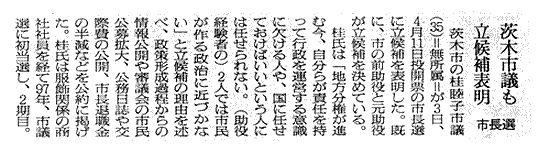 茨木市議も
立候補表明
市長選
茨木市の桂睦子市議
＝無所属＝が3日、
4月11日投開票の市長選
に立候補を表明した。既
に、市の前助役と元助役
が立候補を決めている。
桂氏は「地方分権が進
む今、自分らが責任を持
って行政を運営する意識
に欠ける人や、国に任せ
ておけばいいという人に
は任せられない。（助役
経験者の）2人では市民
が作る政治に近づかな
い」と立候補の理由を述
べ、政策形成過程からの
情報公開や審議会の市民
公募拡大、公務日誌や交
際費の公開、市長退職金
の半減などを公約に掲げ
た。桂氏は服飾関係の商
社社員を経て97年、市議
選に初当選し、2期目。